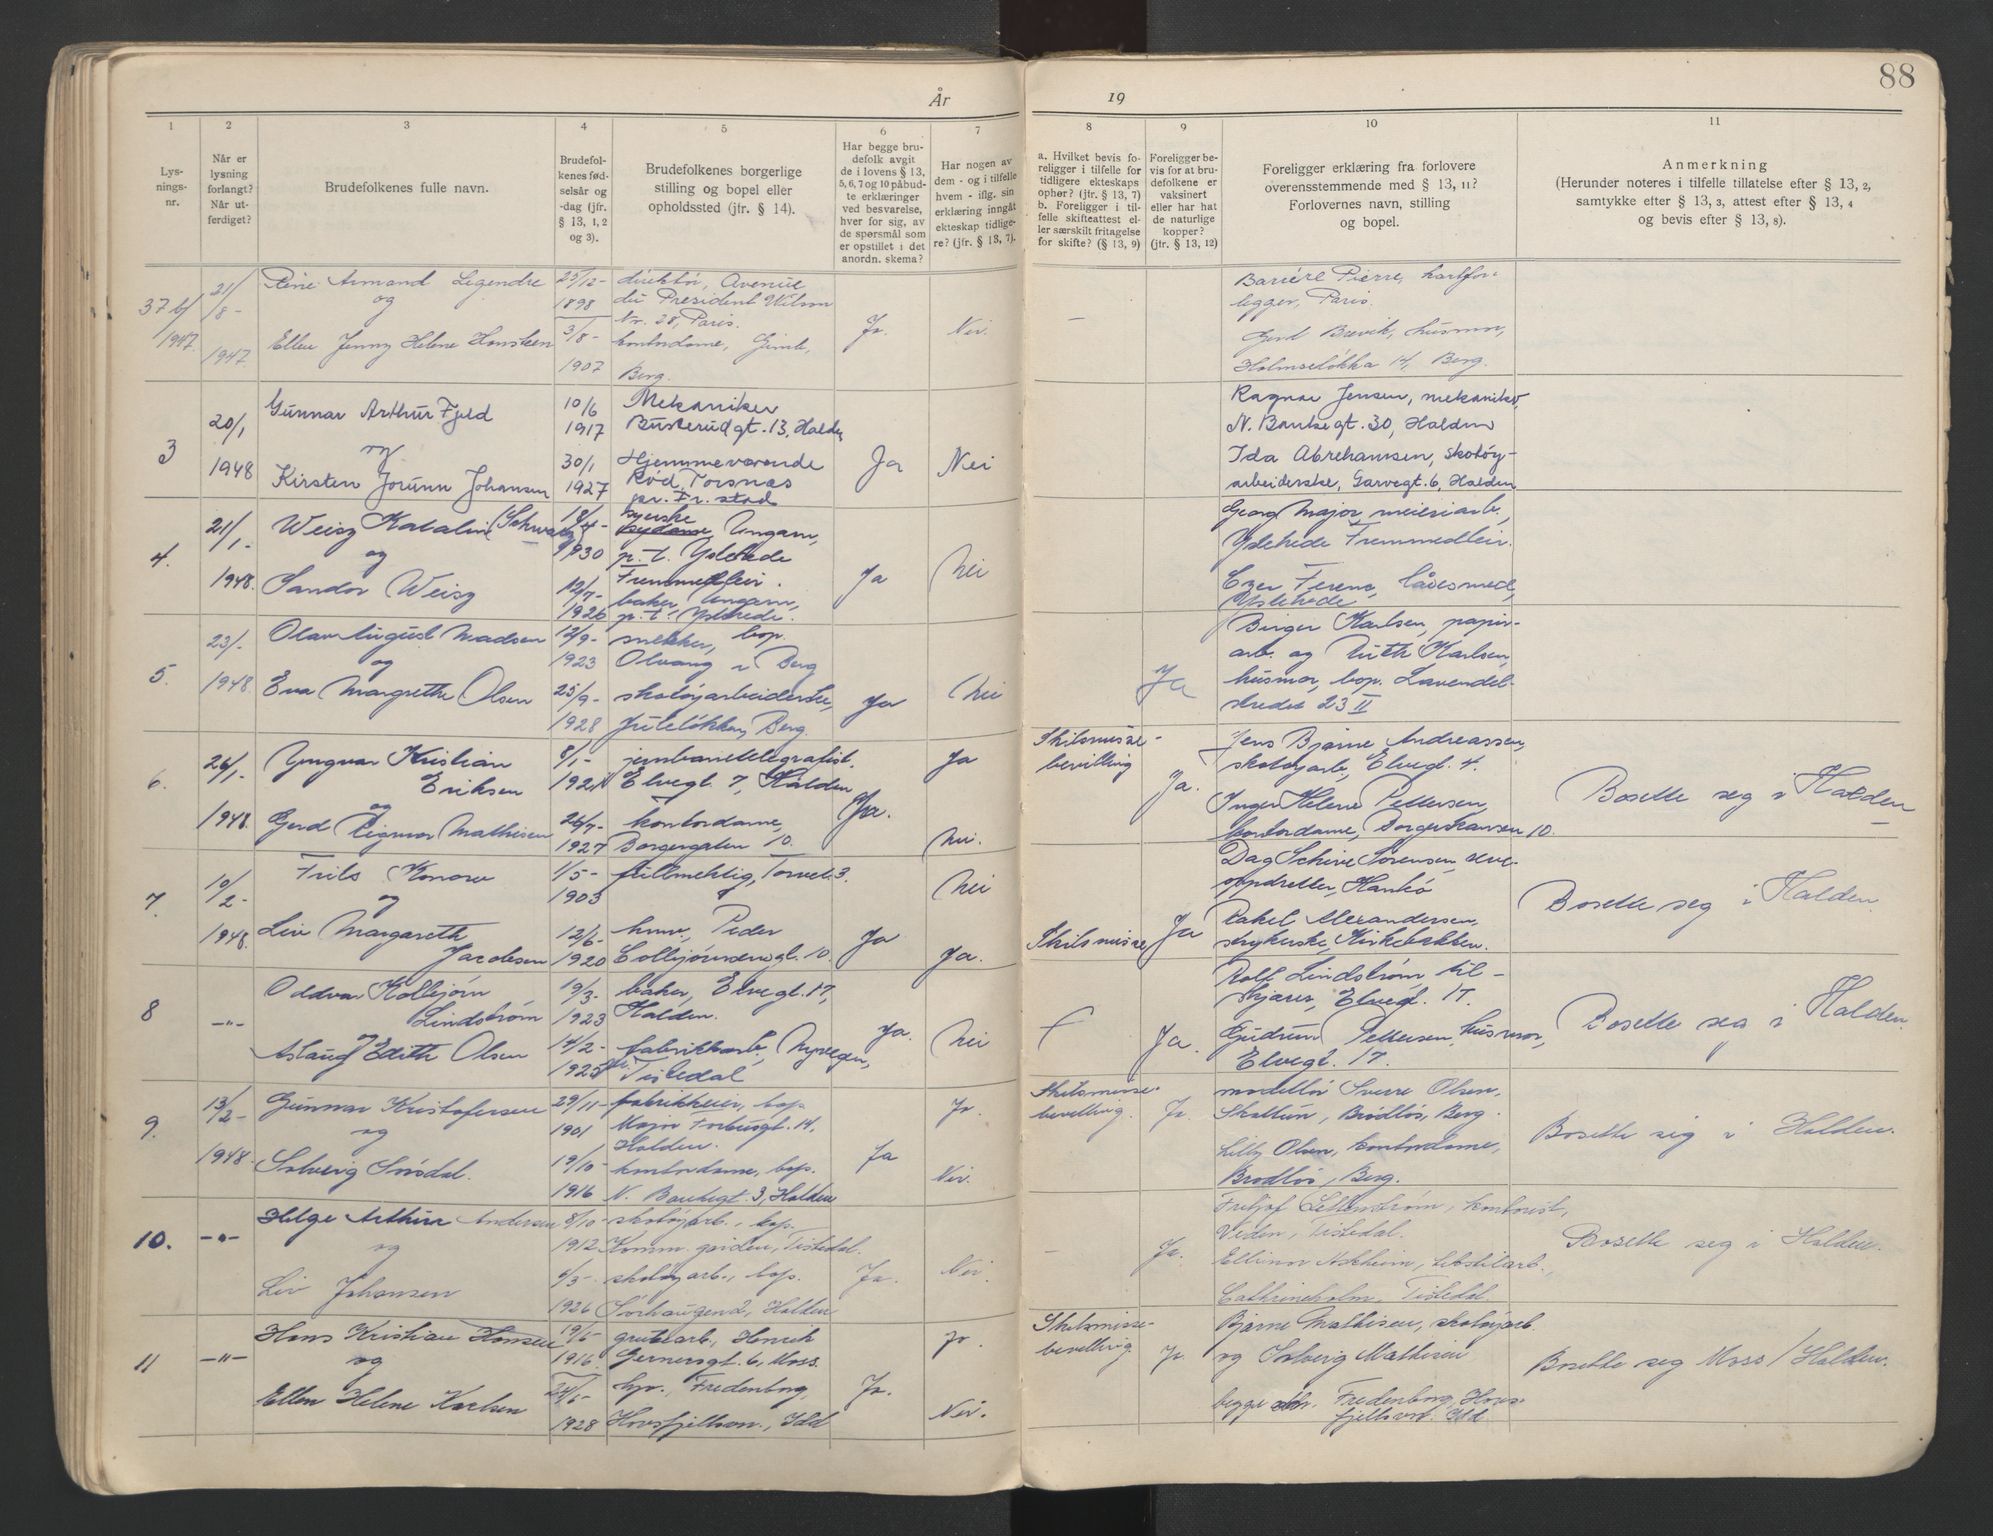 88
År 19
1 2 3 4 5 6 7 8 9 10 11
Lys-
nings-
nr.
Når er
lysning
forlangt?
Når ut-
ferdiget?
Brudefolkenes fulle navn.
Brudefol-
kenes fød-
selsår og
-dag (jfr.
§ 13, 1, 2
og 3).
Brudefolkenes borgerlige
stilling og bopel eller
opholdssted (jfr. § 14).
Har begge bru-
defolk avgit
de i lovens § 13,
5, 6, 7 og 10 påbud-
te erklæringer
ved besvarelse,
hver for sig, av
de spørsmål som
er opstillet i det
anordn. skema?
Har nogen av
dem - og i tilfelle
hvem - iflg. sin
erklæring inngått
ekteskap tidlige-
re? (jfr. § 13, 7).
a. Hvilket bevis fo-
religger i tilfelle for
tidligere ekteskaps
ophør? (jfr. § 13, 7)
b. Foreligger i til-
felle skifteattest el-
ler særskilt fritagelse
for skifte? (§ 13, 9)
Foreligger be-
vis for at bru-
defolkene er
vaksinert
eller har hat
de naturlige
kopper?
(jfr. § 13, 12)
Foreligger erklæring fra forlovere
overensstemmende med § 13, 11?
Forlovernes navn, stilling
og bopel.
Anmerkning
(Herunder noteres i tilfelle tillatelse efter § 13, 2,
samtykke efter § 13, 3, attest efter § 13, 4
og bevis efter § 13, 8).
37 b/
1947
21/
8-
1947
René Armand Legendre
og
Ellen Jenny Helene Hansteen
25/12-
1898
3/8-
1907
direktør, Avenue
du President Wilson
Nr. 28, Paris.
kontordame, Gimle,
Berg.
Ja
Nei.
—
Pierre, kartfor-
legger, Paris.
Gerd Brevik, husmor,
Holmseløkka 14, Berg.
3
20/1
1948
Gunnar Arthur Fjeld
og
Kirsten Jorunn Johansen
10/6
1917
30/1
1927
Mekaniker
Busterudgt. 13, Halden
Hjemmeværende
Rød, Torsnæs
pr. Fr. stad
Ja
Nei
Ragnar Jensen, mekaniker,
N. Bankegt. 30, Halden
Ida Abrahamsen, skotøy-
arbeiderske, Garvegt. 6, Halden
4.
21/1-
1948.
Weisz Katalin (Schwarz)
og
Sandor Weisz
18/4-
1930
12/7-
1926
syerske
sydame, Ungarn,
p.t. Ystehede
Fremmedleir.
baker, Ungarn,
p.t. Ystehede.
Ja
Nei
Georg Major, meieriarb.,
Ystehede Fremmedleir.
Ferenc, låsesmed,
Ystehede
5.
23/1
1948.
Olav August Madsen
og
Eva Margrethe Olsen
12/9-
1923
25/9-
1928
snekker, bop.
Olvang i Berg
skotøyarbeiderske,
Juteløkken, Berg.
Ja
Nei
Ja
Birger Karlsen, papir-
arb. og Ruth Karlsen,
husmor, bop. Lavendel-
stredet 23 II
6.
26/1-
1948.
Yngvar Kristian
Eriksen
og
Gerd Rigmor Mathisen
8/1-
1921
26/7-
1927
jernbanetelegrafist.
Elvegt. 7, Halden
kontordame,
Borgergaten 10.
Ja.
Ja
Nei.
Skilsmisse-
bevilling
Ja.
Jens Bjarne Andreassen,
skotøyarb., Elvegt. 4.
Inger Helene Pettersen,
kontordame, Borgerkansen 10.
Bosette seg i Halden
7.
10/2-
1948.
Frits
og
Liv Margareth
Jacobsen
1/5-
1903
12/6-
1920
fullmektig, Torvet 3.
husv., Peder
Colbjørnsensgt. 10.
Ja
Nei
Ja.
Skilsmisse
Ja
Dag Schive Sørensen, reve-
oppdretter, Hankø
Rakel Alexandersen,
strykerske, Kirkebakken.
Bosette seg i Halden
8
—"—
Oddvar Kolbjørn
Lindstrøm
og
Aslaug Edith Olsen
19/3-
1923
14/2-
1925
baker, Elvegt. 17,
Halden.
fabrikkarb., Nyvegen,
Tistedal
Ja.
Nei
Ja.
Rolf Lindstrøm, til-
skjærer, Elvegt. 17.
Gudrun Pettersen, husmor,
Elvegt. 17.
Bosette seg i Halden.
9.
13/2-
1948.
Gunnar Kristofersen
og
Solveig Sørsdal.
29/11-
1901
19/10-
1916
fabrikkeier, bop.
Major Forbusgt. 14,
Halden.
kontordame, bop.
N. Bankegt. 3, Halden
Ja
Ja.
Nei.
Skilsmisse-
bevilling.
Ja.
modellør Sverre Olsen,
Skottun, Brødløs, Berg.
Lilly Olsen, kontordame,
Brødløs, Berg.
Bosette seg i Halden.
10.
—"—
Helge Arthur Andersen
og
Liv Johansen
8/10-
1912
6/3-
1926
skotøyarb., bop.
Komm. gården, Tistedal.
skotøyarb., bop.
Sørhaugen 2, Halden
Ja.
Nei.
—
Ja.
Fritjof Lettenstrøm, kontorist,
Veden, Tistedal.
Ellinor Askheim, tekstilarb.,
Cathrineholm, Tistedal
Bosette seg i Halden.
11
—"—
Hans Kristian Hansen
og
Ellen Helene Karlsen
19/5-
1916.
24/5-
1928
grubearb., Henrik
Gernersgt. 6, Moss.
hjv., Fredenborg,
Hovsfjellvn., Idd
Ja.
Ja.
Nei.
Skilsmisse-
bevilling.
Ja.
Bjarne Mathisen, skotøyarb.
og Solveig Mathisen
begge Fredenborg, Hovs-
fjellsvn. Idd
Bosette seg Moss / Halden.